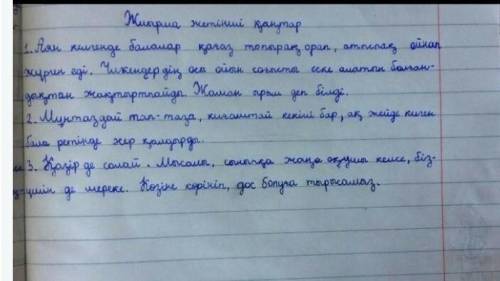 Жиырма жетінші қаңтар
1. Аян келгенде балалар қағаз топырақ орап, атпақ ойнап
жүрген еді. Үлкендердің осы ойын соғысты еске алатын болған-
дықтан жақтыртпайды. Жаман ырым деп білді.
2. Мұнтаздай тап-таза, қиғаштай кекілі бар, ақ жейде киген
бала ретінде әсер қалдырды.
3. Қазір де солай. Мысалы, сыныпқа жаңа оқушы келсе, біз-
үшін де мереке. Көзіне көрініп, дос болуға тырысамыз.